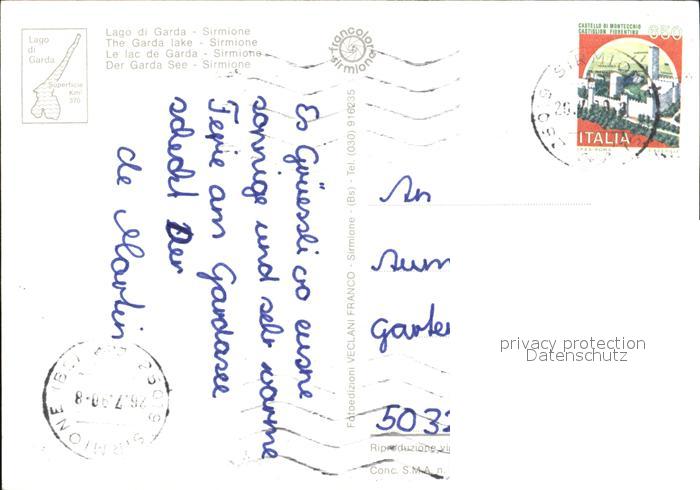 Lago di Garda - Sirmione
The Garda lake - Sirmione
Le lac de Garda - Sirmione
Der Garda See - Sirmione
Lago
di
Garda
Superficie
Km²
370
francolor
sirmione
CASTELLO DI MONTECCHIO
CASTIGLION FIORENTINO
650
ITALIA
Es Grüessli vo eusne
sonnige und sehr warme
Ferie am Gardasee
schickt Der
de Martin
Fotoedizioni VECLANI FRANCO - Sirmione - (Bs) - Tel. (030) 916235
An
Aum
Garte
5032
Riproduzione vi
Conc. S.M.A. n.
privacy protection
Datenschutz
25019 SIRMIONE (BS)
26.7.90-8